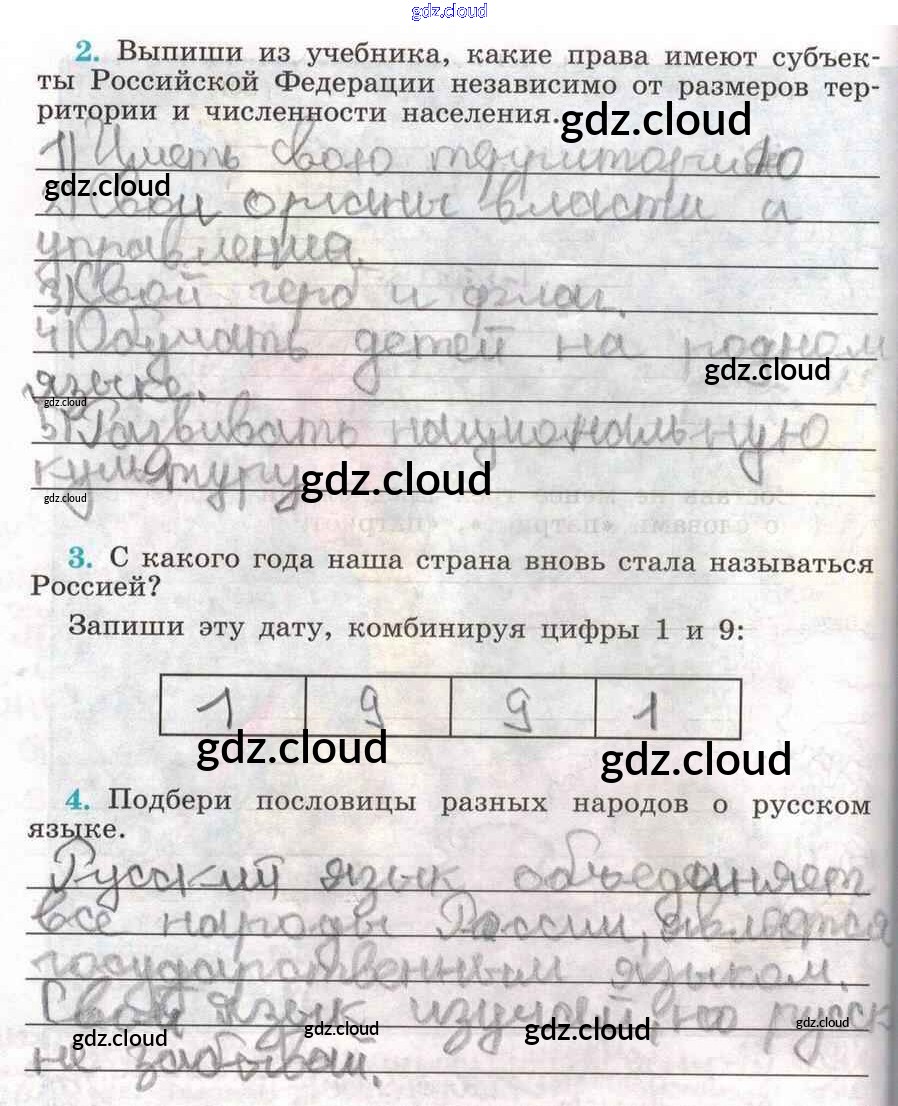 gdz.cloud
2. Выпиши из учебника, какие права имеют субъек-
ты Российской Федерации независимо от размеров тер-
ритории и численности населения.
gdz.cloud
1) Иметь свою территорию
gdz.cloud
2) Свои органы власти и
управления.
3) Свой герб и флаг.
4) Обучать детей на родном
gdz.cloud
языке.
gdz.cloud
5) Развивать национальную
культуру
gdz.cloud
gdz.cloud
3. С какого года наша страна вновь стала называться
Россией?
Запиши эту дату, комбинируя цифры 1 и 9:
1 9 9 1
gdz.cloud
gdz.cloud
4. Подбери пословицы разных народов о русском
языке.
Русский язык объединяет
все народы России, является
государственным языком.
Свой язык изучай, но русск
gdz.cloud
gdz.cloud
gdz.cloud
gdz.cloud
не забывай.